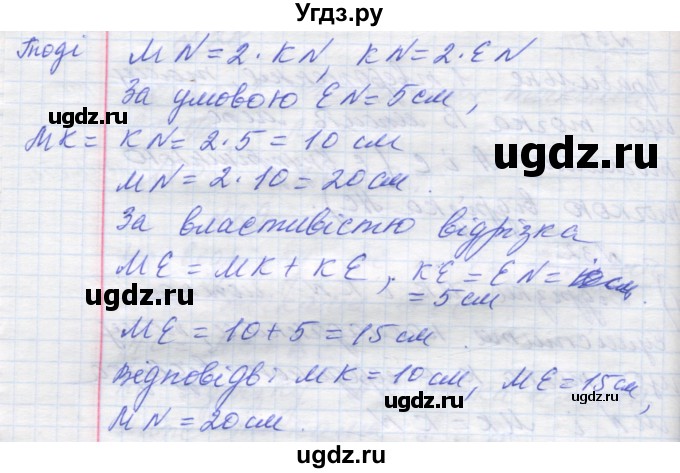 Угдз.ру
Тоді MN = 2 · KN, KN = 2 · EN
За умовою EN = 5 см,
gdz.ru
MK = KN = 2 · 5 = 10 см
ugdz.ru
MN = 2 · 10 = 20 см.
За властивістю відрізка
ME = MK + KE, KE = EN =
= 5 см
gdz.ru
ugdz.ru
ME = 10 + 5 = 15 см.
Відповідь: MK = 10 см, ME = 15 см,
gdz.ru
MN = 20 см.
ugdz.ru